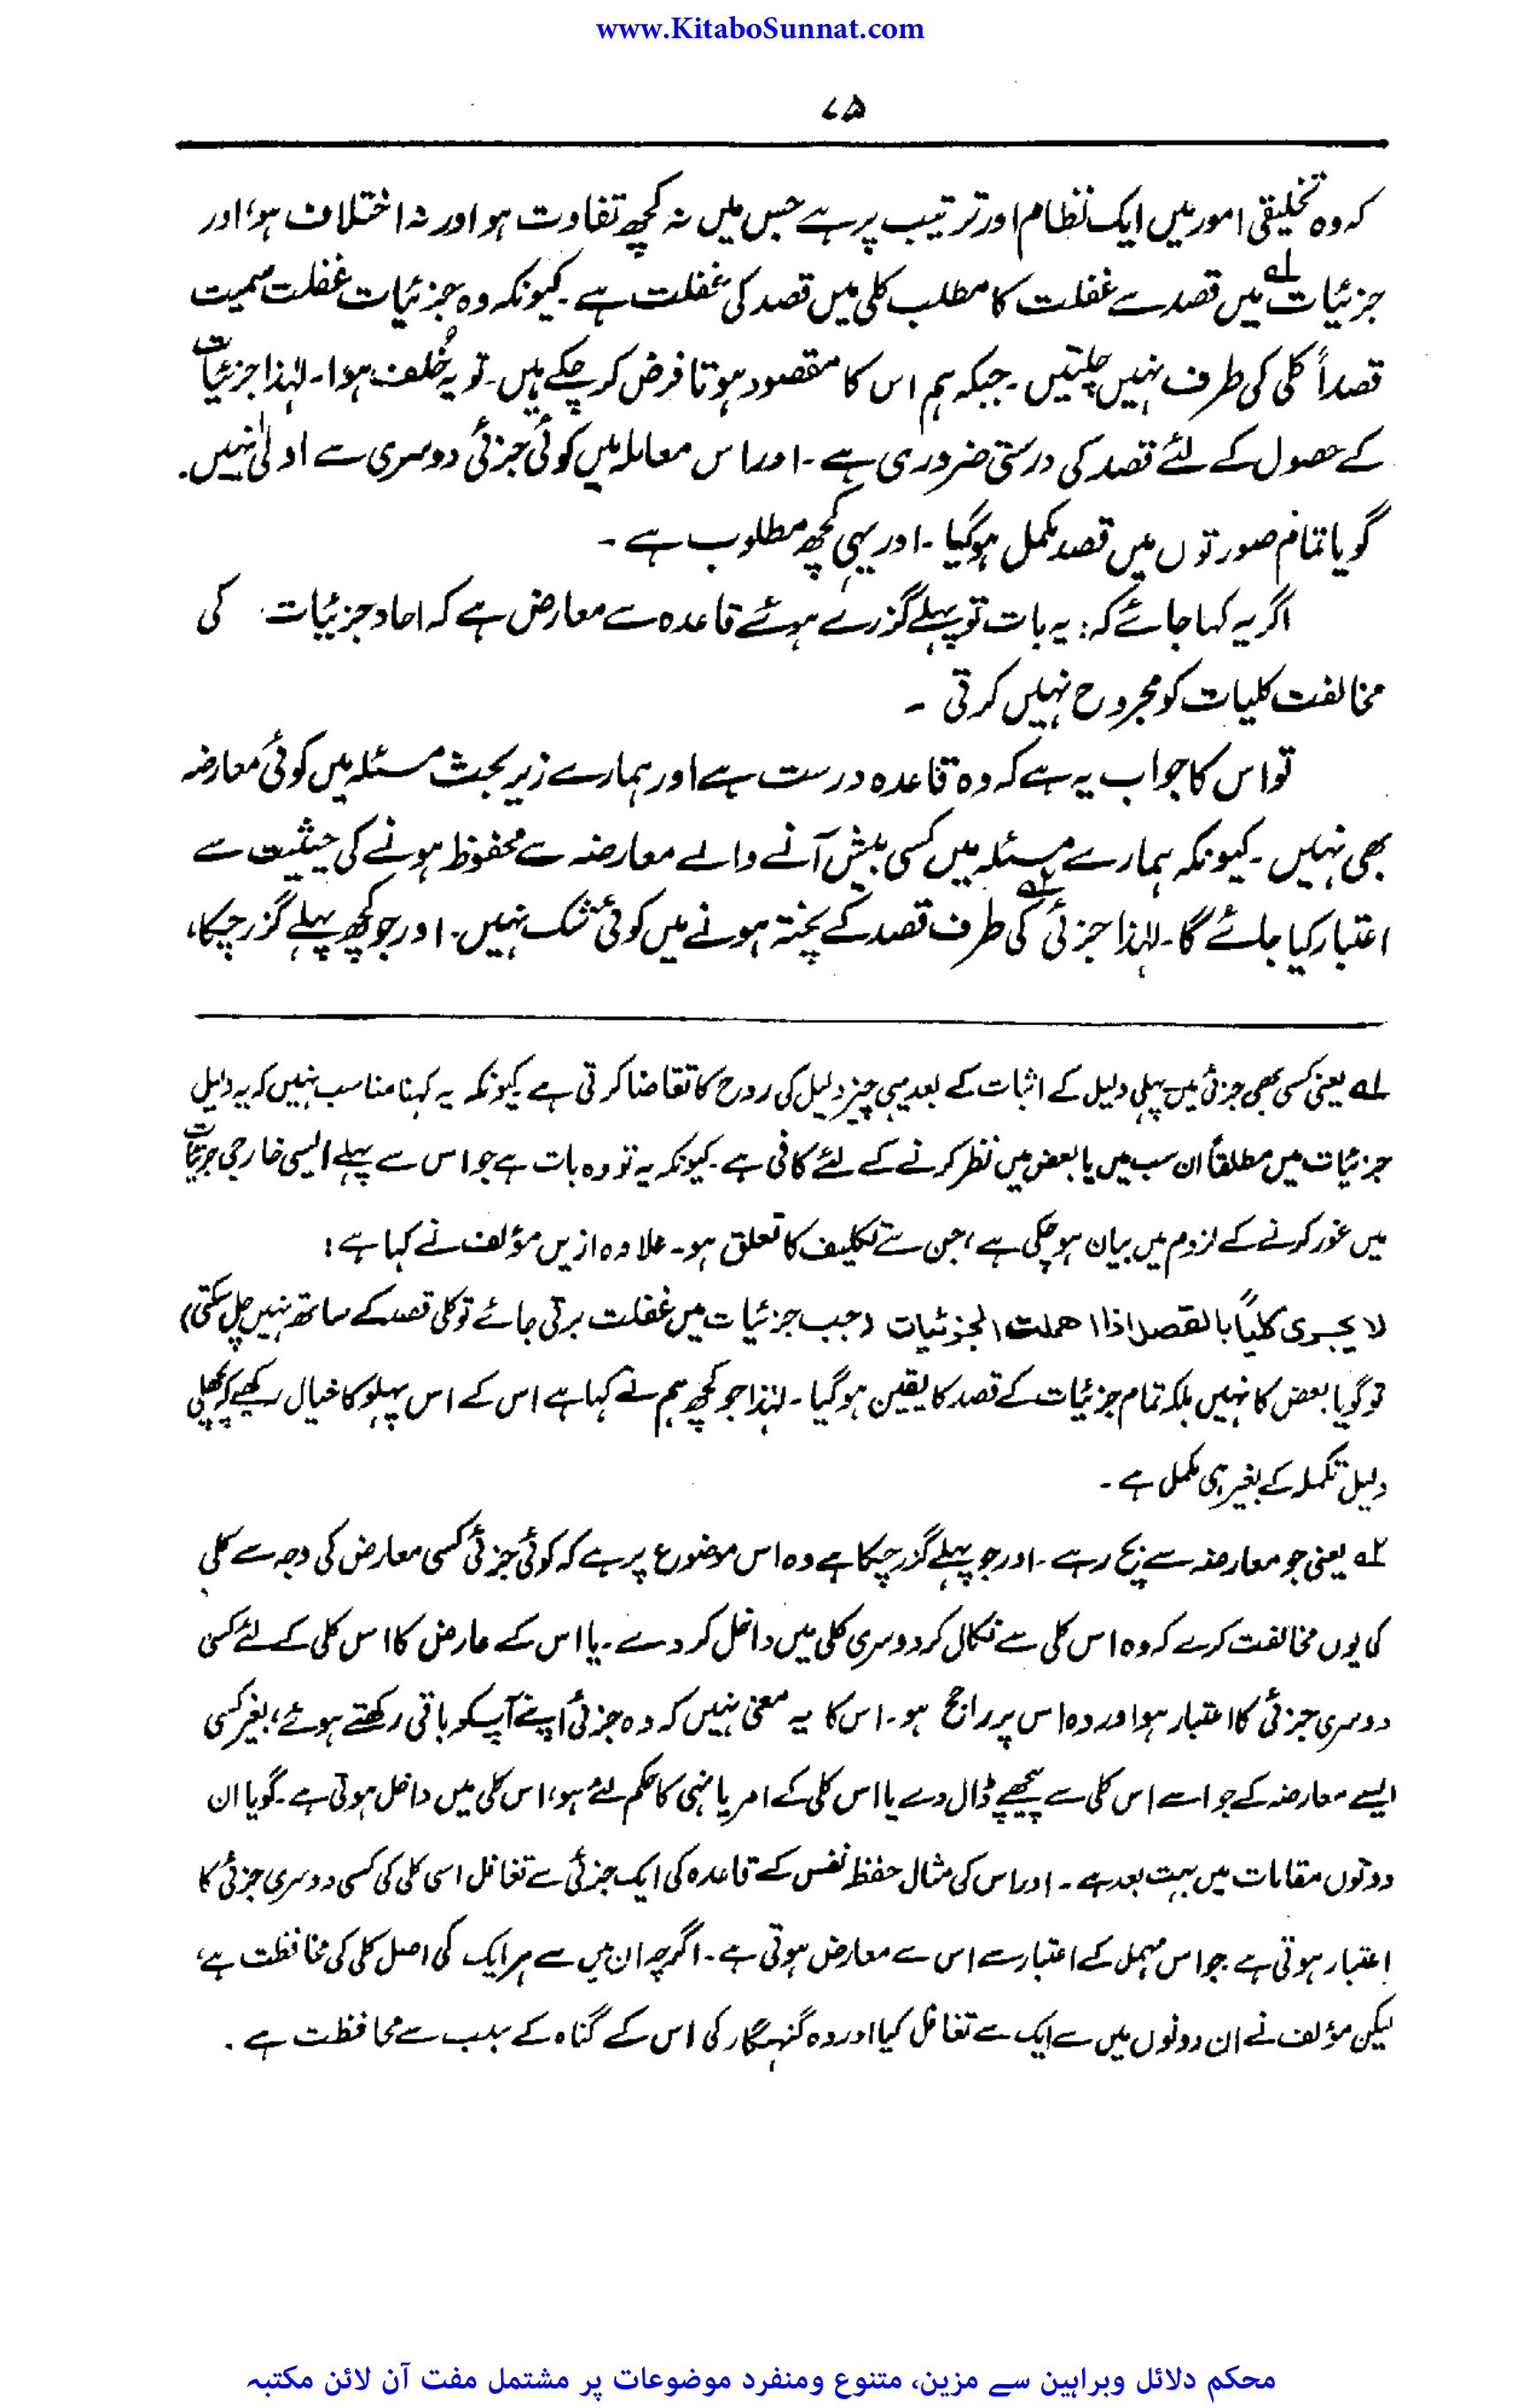 www.KitaboSunnat.com
۷۵
کہ وہ تخلیقی امور میں ایک نظام اور ترتیب پر ہے جس میں نہ کچھ تفاوت ہو اور نہ اختلاف ہو، اور
جزئیات ؎۱ میں قصد سے غفلت کا مطلب کلی میں قصد کی غفلت ہے ۔ کیونکہ وہ جزئیات غفلت سمیت
قصداً کلی کی طرف نہیں چلتیں ۔ جبکہ ہم اس کا مقصود ہونا فرض کر چکے ہیں ۔ تو یہ خُلف ہوا ۔ لہٰذا جزئیات
کے حصول کے لئے قصد کی درستی ضروری ہے ۔ اور اس معاملہ میں کوئی جزئی دوسری سے اولیٰ نہیں ۔
گویا تمام صورتوں میں قصد مکمل ہو گیا ۔ اور یہی کچھ مطلوب ہے ۔
اگر یہ کہا جائے کہ : یہ بات تو پہلے گزرے ہوئے قاعدہ سے معارض ہے کہ احاد جزئیات کی
مخالفت کلیات کو مجروح نہیں کرتی ۔
تو اس کا جواب یہ ہے کہ وہ قاعدہ درست ہے اور ہمارے زیر بحث مسئلہ میں کوئی معارضہ
بھی نہیں ۔ کیونکہ ہمارے مسئلہ میں کسی پیش آنے والے معارضہ سے محفوظ ہونے کی حیثیت سے
اعتبار کیا جائے گا ۔ لہٰذا جزئی ؎۲ کی طرف قصد کے پختہ ہونے میں کوئی شک نہیں ۔ اور جو کچھ پہلے گزر چکا،
؎۱ یعنی کسی بھی جزئی میں پہلی دلیل کے اثبات کے بعد یہی چیز دلیل کی روح کا تقاضا کرتی ہے کیونکہ یہ کہنا مناسب نہیں کہ یہ دلیل
جزئیات میں مطلقاً ان سب میں یا بعض میں نظر کرنے کے لئے کافی ہے ۔ کیونکہ یہ تو وہ بات ہے جو اس سے پہلے ایسی خارجی جزئیات
میں غور کرنے کے لزوم میں بیان ہو چکی ہے، جن سے تکلیف کا تعلق ہو ۔ علاوہ ازیں مؤلف نے کہا ہے :
لا یجری کلیاً بالقصد اذا اھملت الجزئیات (جب جزئیات میں غفلت برتی جائے تو کلی قصد کے ساتھ نہیں چل سکتی)
تو گویا بعض کا نہیں بلکہ تمام جزئیات کے قصد کا یقین ہو گیا ۔ لہٰذا جو کچھ ہم نے کہا ہے اس کے اس پہلو کا خیال رکھیے کہ پچھلی
دلیل تکملہ کے بغیر ہی مکمل ہے ۔
؎۲ یعنی جو معارضہ سے بچ رہے ۔ اور جو پہلے گزر چکا ہے وہ اس موضوع پر ہے کہ کوئی جزئی کسی معارض کی وجہ سے کلی
کی یوں مخالفت کرے کہ وہ اس کلی سے نکال کر دوسری کلی میں داخل کر دے ۔ یا اس کے عارض کا اس کلی کے لئے کسی
دوسری جزئی کا اعتبار ہو اور وہ اس پر راجح ہو ۔ اس کا یہ معنی نہیں کہ وہ جزئی اپنے آپ کو باقی رکھتے ہوئے، بغیر کسی
ایسے معارضہ کے جو اسے اس کلی سے پیچھے ڈال دے یا اس کلی کے امر یا نہی کا حکم لئے ہو، اس کلی میں داخل ہوتی ہے ۔ گویا ان
دونوں مقامات میں بہت بعد ہے ۔ اور اس کی مثال حفظ نفس کے قاعدہ کی ایک جزئی سے تغافل اسی کلی کی کسی دوسری جزئی کا
اعتبار ہوتی ہے جو اس مہمل کے اعتبار سے اس سے معارض ہوتی ہے ۔ اگرچہ ان میں سے ہر ایک کی اصل کلی کی محافظت ہے،
لیکن مؤلف نے ان دونوں میں سے ایک سے تغافل کیا اور وہ گنہگار کی اس کے گناہ کے سبب سے محافظت ہے ۔
محکم دلائل وبراہین سے مزین، متنوع ومنفرد موضوعات پر مشتمل مفت آن لائن مکتبہ